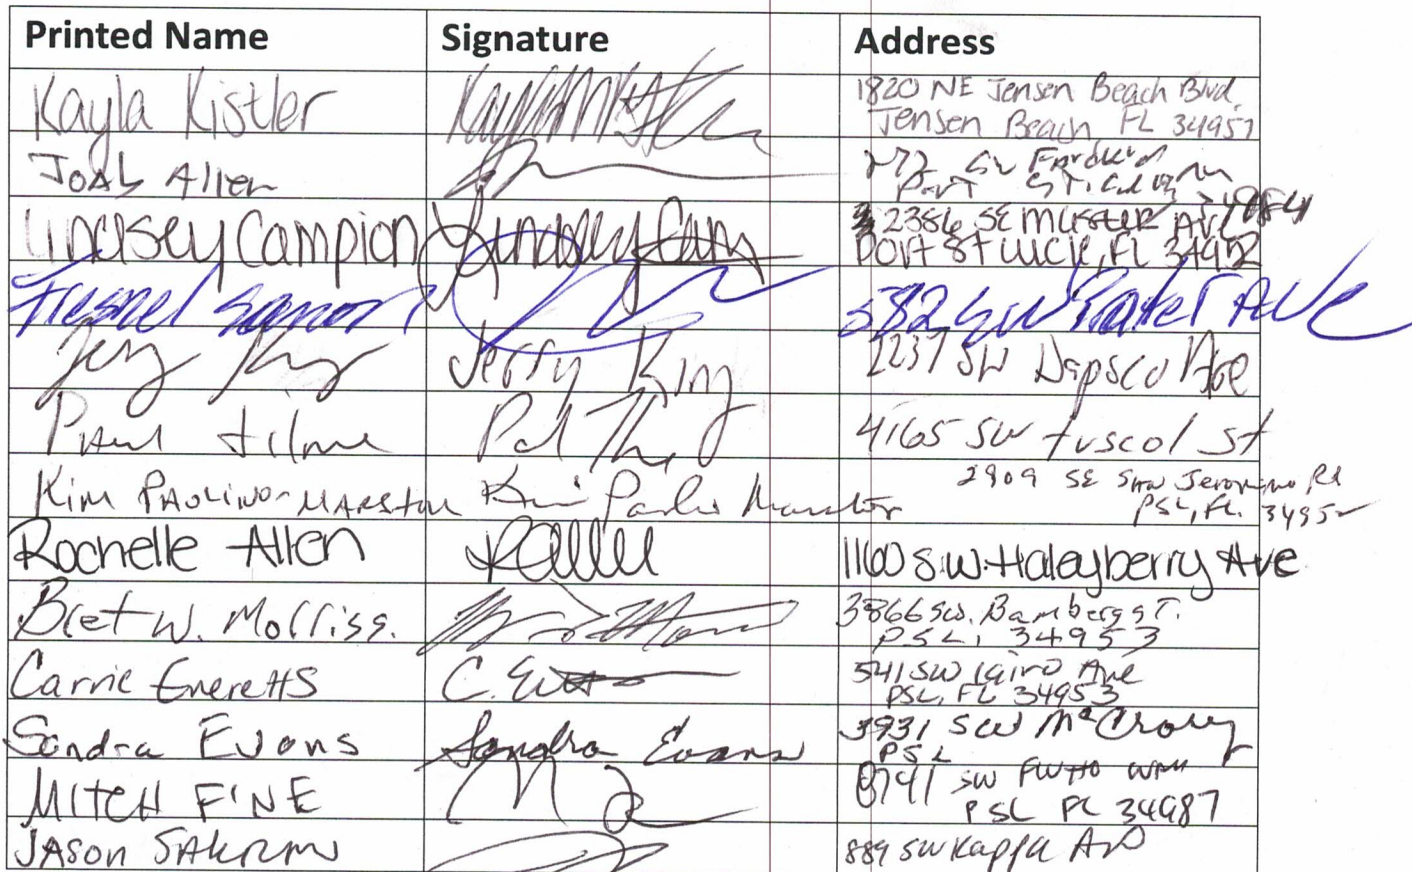 Printed Name Signature Address
Kayla Kistler 1820 NE Jensen Beach Blvd.
Jensen Beach FL 34957
Allen 272 SW
Port
Lindsey Campion Lindsey 2386 SE Ave
Port St Lucie, FL 34952
Fresnel 582 SW Prater Ave
Jerry King Jerry King 2237 SW Ave
Paul 4165 SW tuscol St
Kim PAULINO-MARSTON Kim 2909 SE San Jeronimo Rd
PSL, FL. 34952
Rochelle Allen 1160 S.W. Haleyberry Ave
Bret W. Morriss. 3866 SW. Bamberg ST.
PSL, 34953
Carrie Everetts C. 541 SW Cairo Ave
PSL, FL 34953
Sandra Evans Sandra Evans 3931 SW McCrory
PSL
MITCH FINE SW
PSL FL 34987
JASON 889 SW Kappa